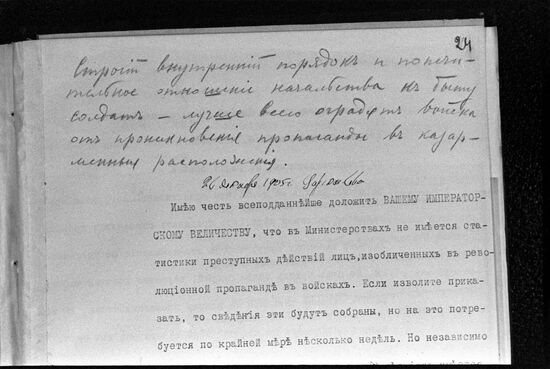 24
Строгій внутренній порядокъ и попечи-
тельное отношеніе начальства къ быту
солдатъ — лучше всего оградятъ войска
отъ проникновенія пропаганды въ казар-
менныя расположенія.
26 1905 г.
Имѣю честь всеподданнѣйше доложить ВАШЕМУ ИМПЕРАТОР-
СКОМУ ВЕЛИЧЕСТВУ, что въ Министерствахъ не имѣется ста-
тистики преступныхъ дѣйствій лицъ,изобличенныхъ въ рево-
люціонной пропагандѣ въ войскахъ. Если изволите прика-
зать, то свѣдѣнія эти будутъ собраны, но на это потре-
буется по крайней мѣрѣ нѣсколько недѣль. Но независимо